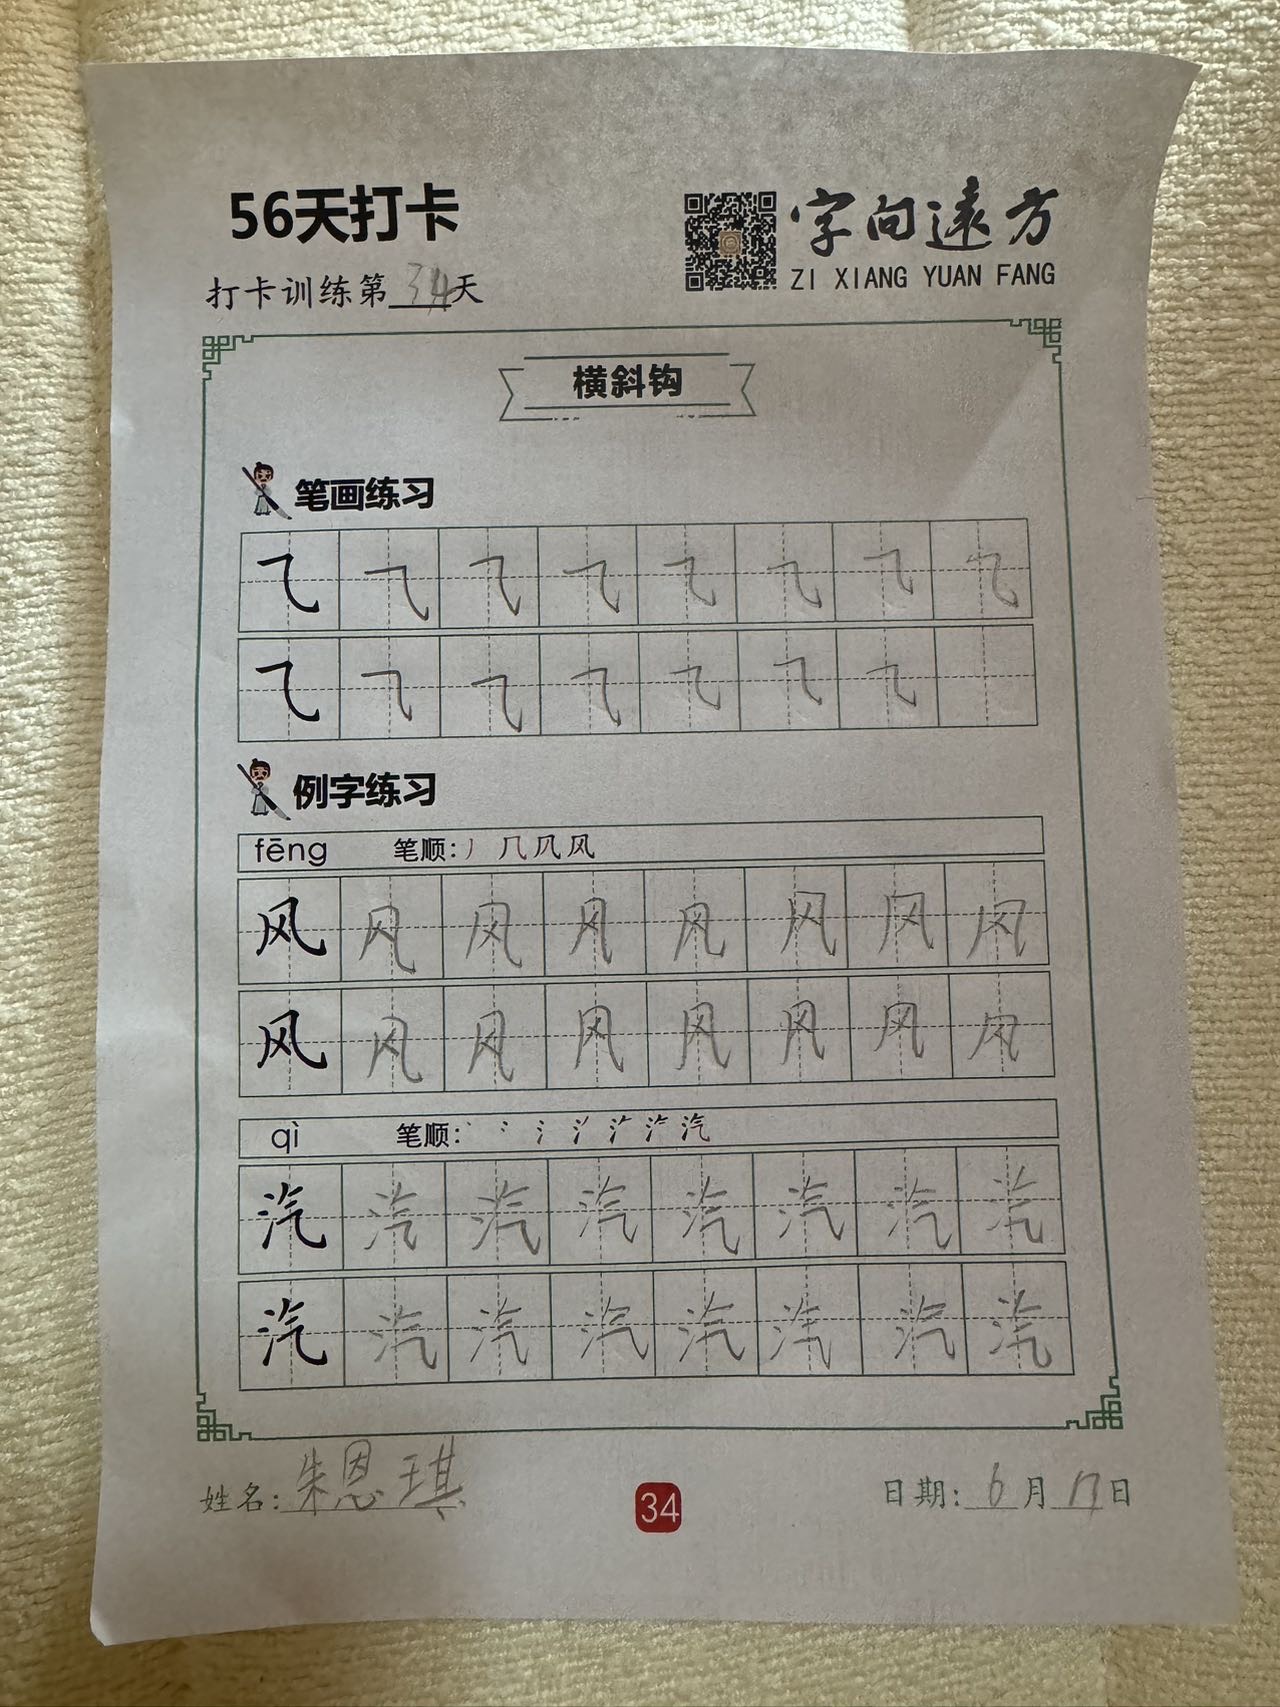 56天打卡
字向远方
ZI XIANG YUAN FANG
打卡训练第34天
横斜钩
笔画练习
⺄ ⺄ ⺄ ⺄ ⺄ ⺄ ⺄ ⺄
⺄ ⺄ ⺄ ⺄ ⺄ ⺄ ⺄
例字练习
fēng 笔顺: 丿 几 凡 风
风 风 风 风 风 风 风 风
风 风 风 风 风 风 风 风
qì 笔顺: 汽
汽 汽 汽 汽 汽 汽 汽 汽
汽 汽 汽 汽 汽 汽 汽 汽
姓名: 朱恩琪
34
日期: 6月17日